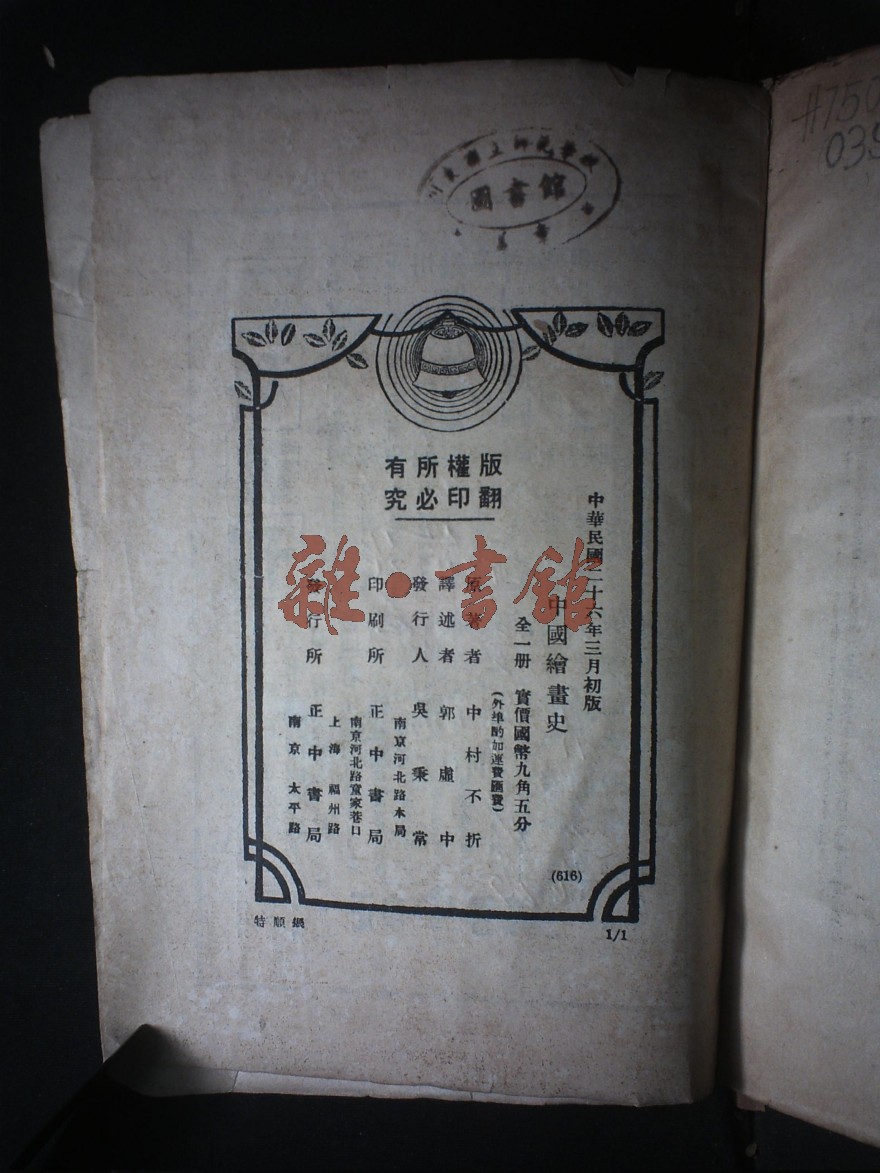 圖書館
版權所有
翻印必究
中華民國二十六年三月初版
中國繪畫史
全一册 實價國幣九角五分
(外埠酌加運費匯費)
原著者 中村不折
譯述者 郭虛中
發行人 吳秉常
南京河北路本局
印刷所 正中書局
南京河北路童家巷口
上海福州路
發行所 正中書局
南京太平路
(616)
1/1
雜·書館
#750
039